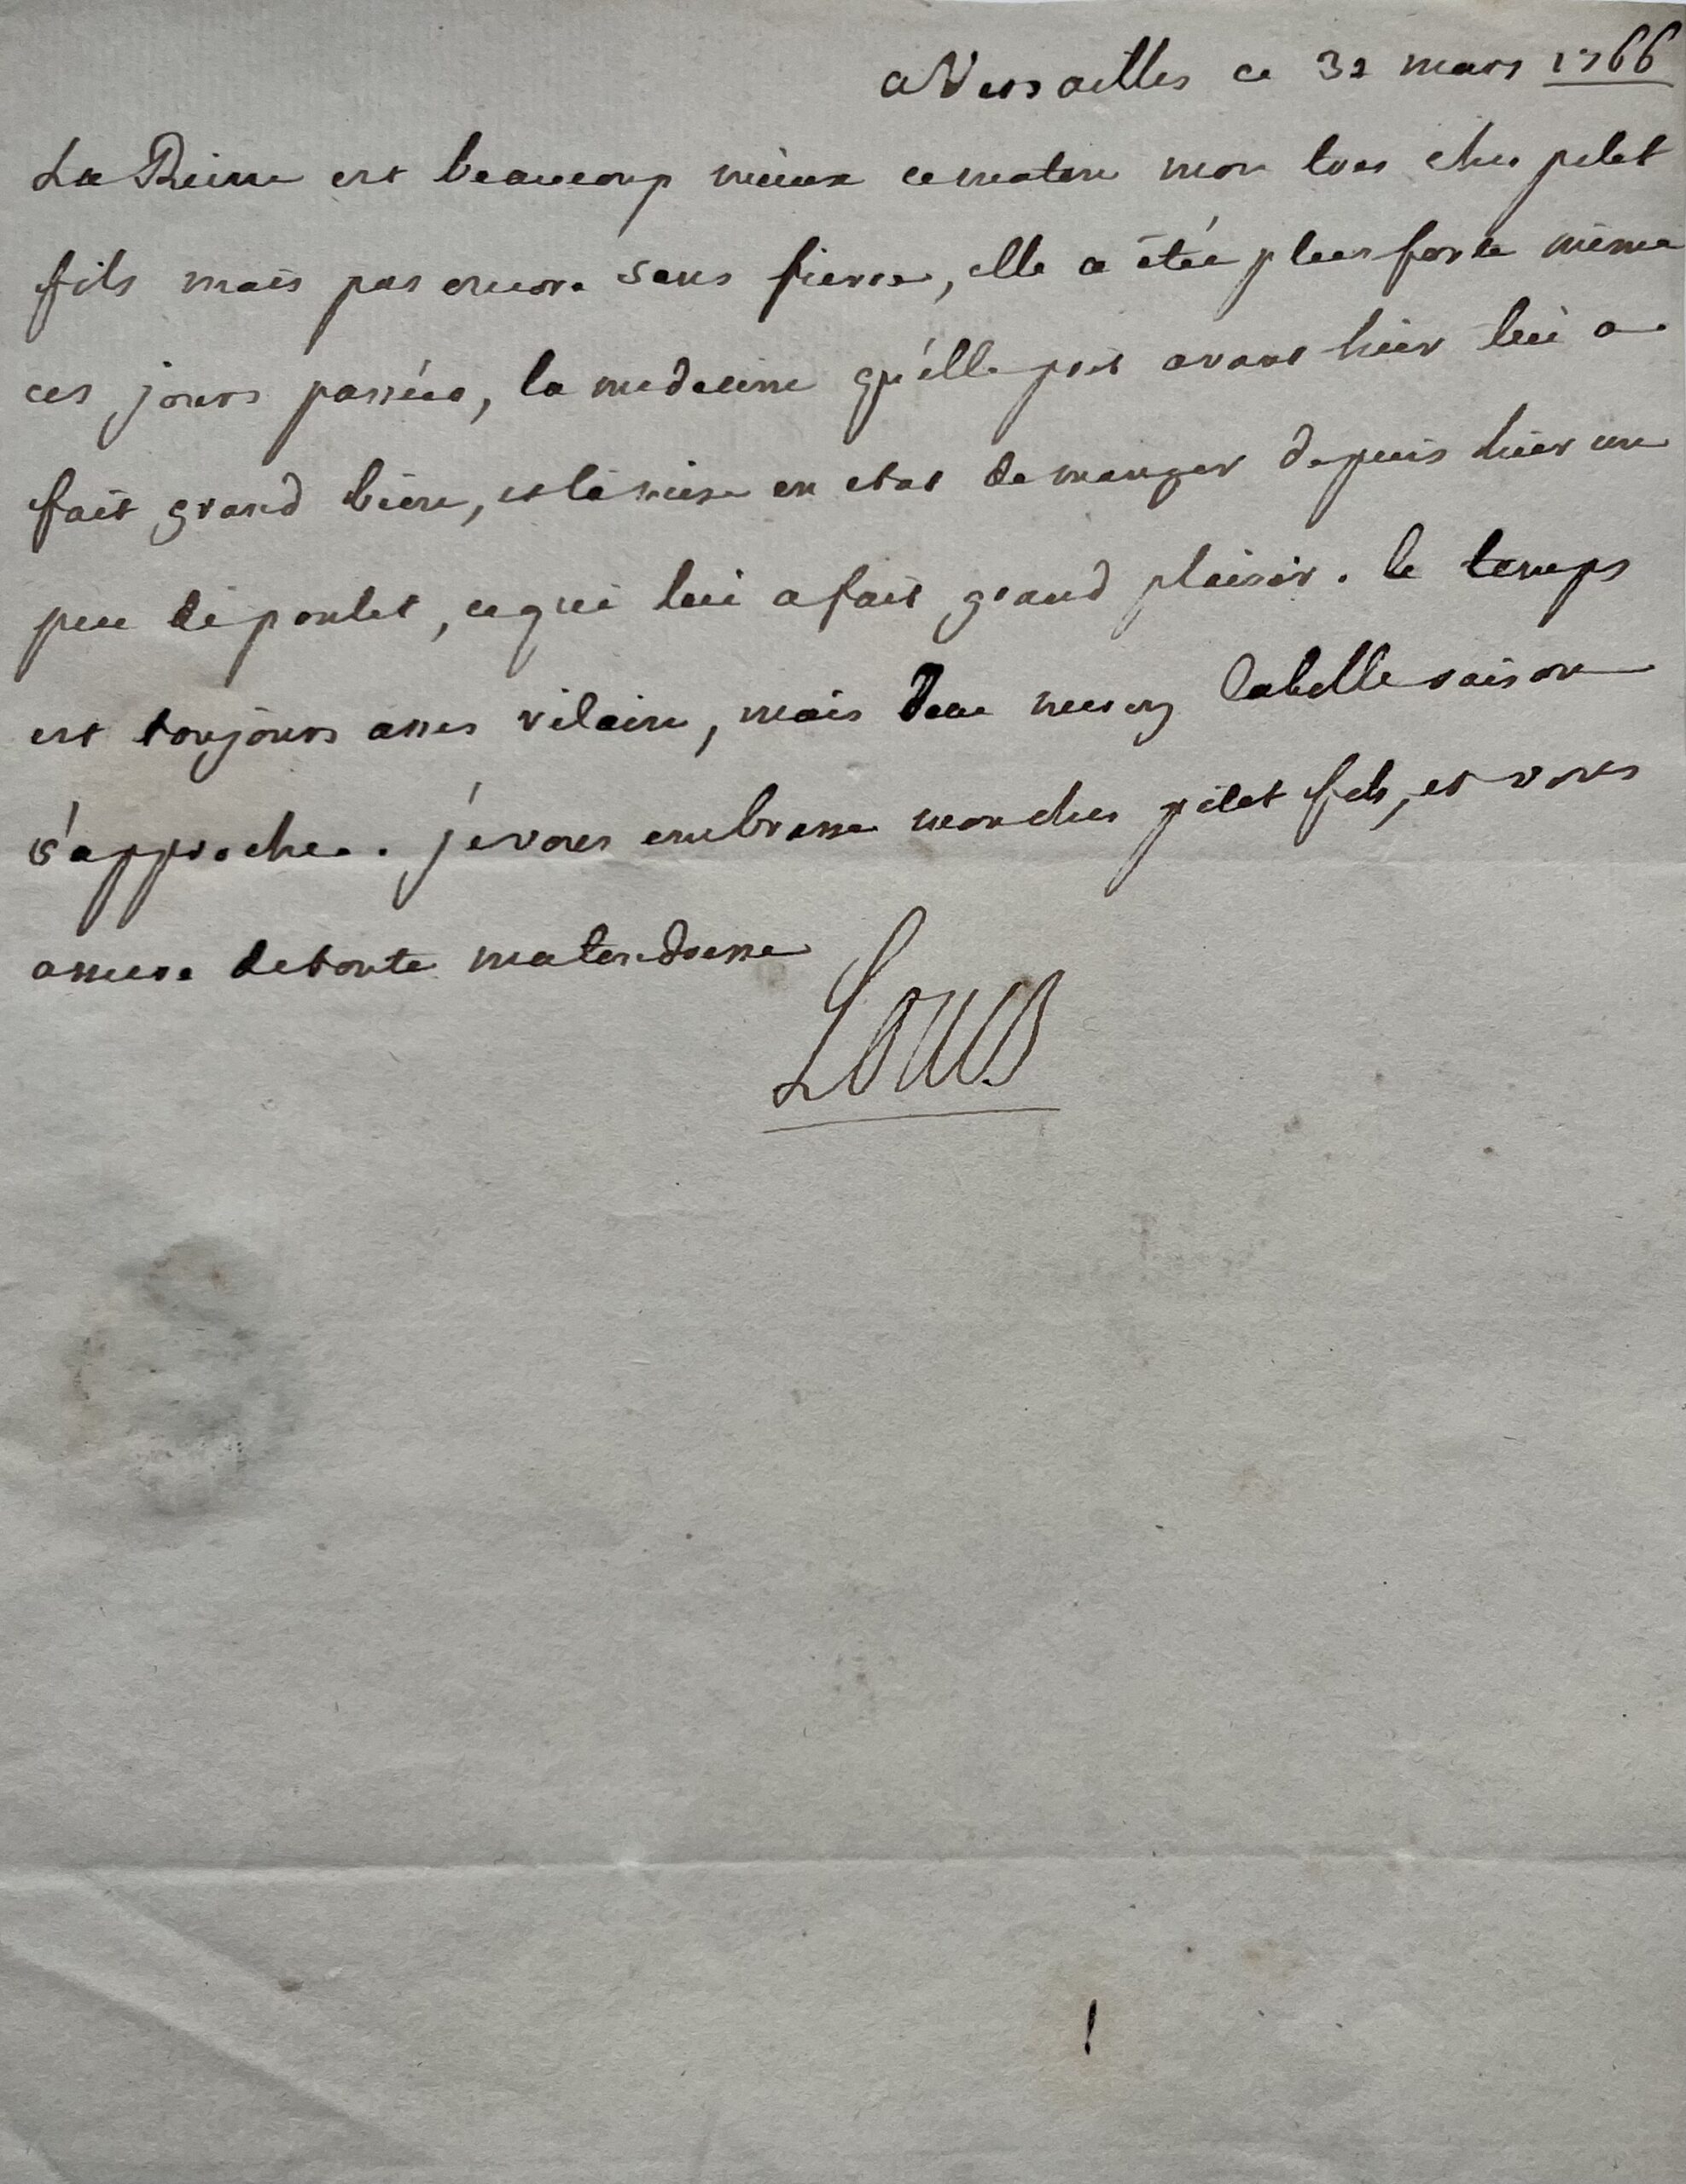 a Versailles ce 31 mars 1766
La Reine est beaucoup mieux ce matin mon tres cher petit
fils mais pas encore sans fievre, elle a étée plus forte même
ces jours passées, la medecine qu'elle prit avant hier lui a
fait grand bien, et la mise en etat de manger depuis hier un
peu de poulet, ce qui lui a fait grand plaisir. le temps
est toujours asses vilain, mais la belle saison
s'approche. je vous embrasse mon cher petit fils, et vous
assure de toute ma tendresse
Louis